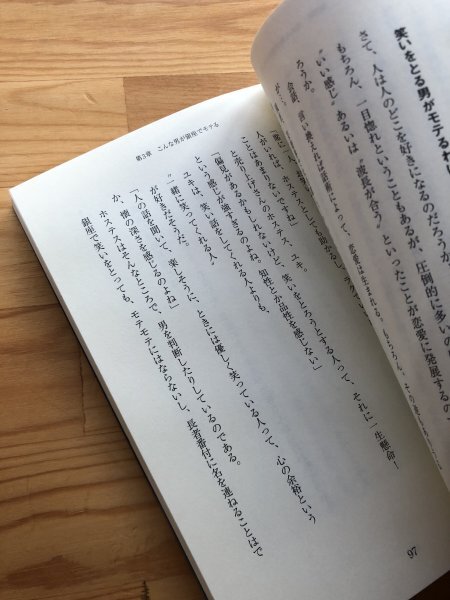 笑いをとる男がモテるわ
さて、人は人のどこを好きになるのだろうか
もちろん、一目惚れということもあるが、圧倒的に多いの
“いい感じ”あるいは“波長が合う”といったことが恋愛に発展するの
ろうか。
会話、言い換えれば話術によって、恋愛は生まれる。もちろん、
第3章 こんな男が銀座でモテる
人がいれば、ホステスとして助かるし、ラクで
ことはあまりないですね」
と売り上げさんのホステス、ユキ。
「偏見があるかもしれないけど、笑いをとろうとする人って、それに一生懸命！
という感じが強すぎるのよね。知性とか品性を感じない」
ユキは、笑い話をしてくれる人よりも、
“一緒に笑ってくれる人”
が好きだそうだ。
「人の話を聞いて、楽しそうに、ときには優しく笑っている人って、心の余裕という
か、懐の深さを感じるのよね」
ホステスはそんなところで、男を判断したりしているのである。
銀座で笑いをとっても、モテモテにはならないし、長者番付に名を連ねることはで
97